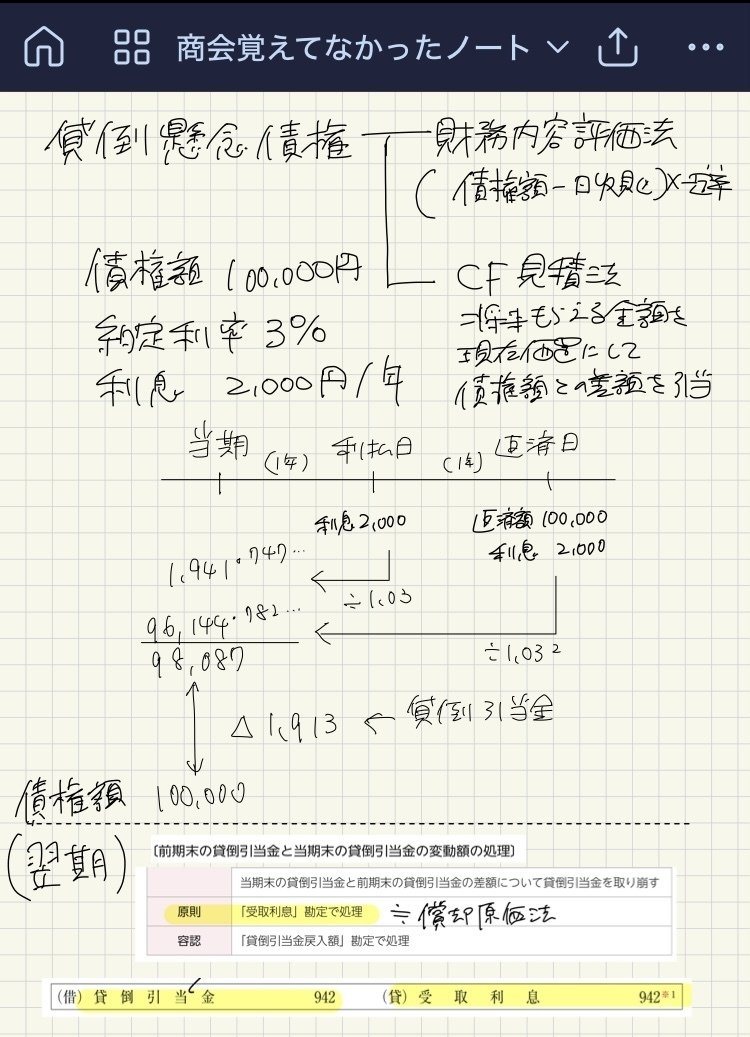 商会覚えてなかったノート
貸倒懸念債権
財務内容評価法
(債権額-回収見込)×一定率
債権額 100,000円
約定利率 3%
利息 2,000円/年
CF見積法
⇒将来もらえる金額を
現在価値にして
債権額との差額を引当
当期 (1年) 利払日 (1年) 返済日
利息 2,000
返済額 100,000
利息 2,000
1,941.747…
÷1.03
96,144.782…
÷1.03²
98,087
△1,913 ← 貸倒引当金
債権額 100,000
(翌期)
〔前期末の貸倒引当金と当期末の貸倒引当金の変動額の処理〕
当期末の貸倒引当金と前期末の貸倒引当金の差額について貸倒引当金を取り崩す
原則 「受取利息」勘定で処理 ≒ 償却原価法
容認 「貸倒引当金戻入額」勘定で処理
(借) 貸倒引当金 942 (貸) 受取利息 942※1